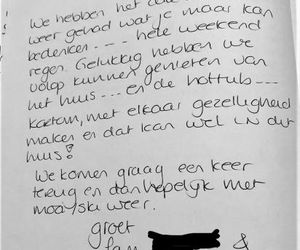 We hebben het
weer gehad wat je maar kan
bedenken - - - - hele weekend
regen. Gelukkig hebben we
volop kunnen genieten van
het huis --- en de hottub---
kortom, met elkaar gezelligheid
maken en dat kan wel in dit
huis!
We komen graag een keer
terug en dan hopelijk met
mooi ski weer.
groet
fam &